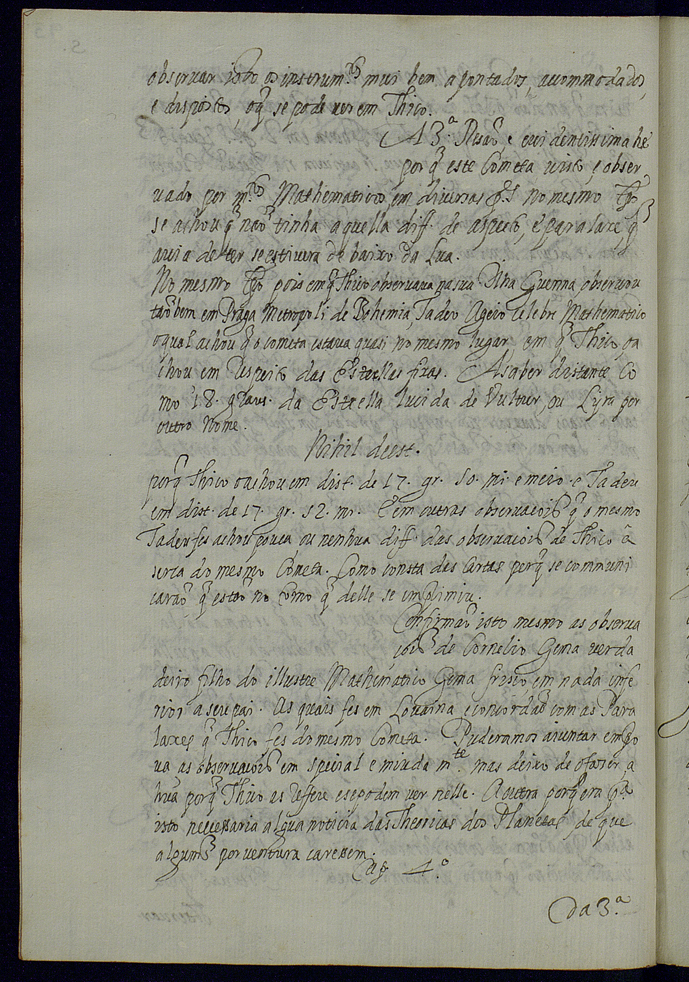 observar isto os instrum.tos mui bem apontados, accommodados,
e dispostos, o q̃ se pode ver em Thico.
A 3.ª Rasaõ, e evidentissima he
porq̃ este Cometa visto e obser
vado por m.tos Mathematicos em diversas p.tes no mesmo tp̃o
se achou q̃ naõ tinha aquella diff. de aspecto, e paralaxe q̃
avia de ter se estivera de baixo da Lua.
No mesmo tp̃o pois em q̃ Thico observava na sua Ilha Guenna, observou
taõbem em Praga Metropoli de Bohemia, Tadeo Ageio celebre Mathematico
o qual achou q̃ o cometa estava quasi no mesmo lugar em q̃ Thico o a
chou em respeito das Estrellas fixas. A saber distante co
mo 18. graus. da Estrella lucida de Vultur, ou Lyra por
outro nome.
Nihil deest.
porq̃ Thico o achou em dist. de 17. gr. 50. mi. e meio. e Tadeu
em dist. de 17. gr. 52. mi. E em outras observacois q̃ o mesmo
Tadeu fes achou pouca ou nenhua diff. das observacois de Thico a
serca do mesmo Cometa. Como consta das Cartas porq̃ se communi
caraõ q̃ estaõ no tomo q̃ delle se imprimiu.
Confirmaõ isto mesmo as observa
cois de Cornelio Gema verda
deiro filho do illustre Mathematico Gema frisio em nada infe
rior a seu pai. As quais fes em Lovaina e concordaõ com as Para
laxes q̃ Thico fes do mesmo Cometa. Puderamos aiuntar em pro
va as observacois em special e miuda m.te mas deixo de o fazer, a
hua porq̃ Thico as refere e se podem ver nelle. A outra porq̃ era p.ª
isto necessaria algua noticia das Theoricas dos Planetas, de que
alguns por ventura caressem.
Cap 4.º
Da 3.ª